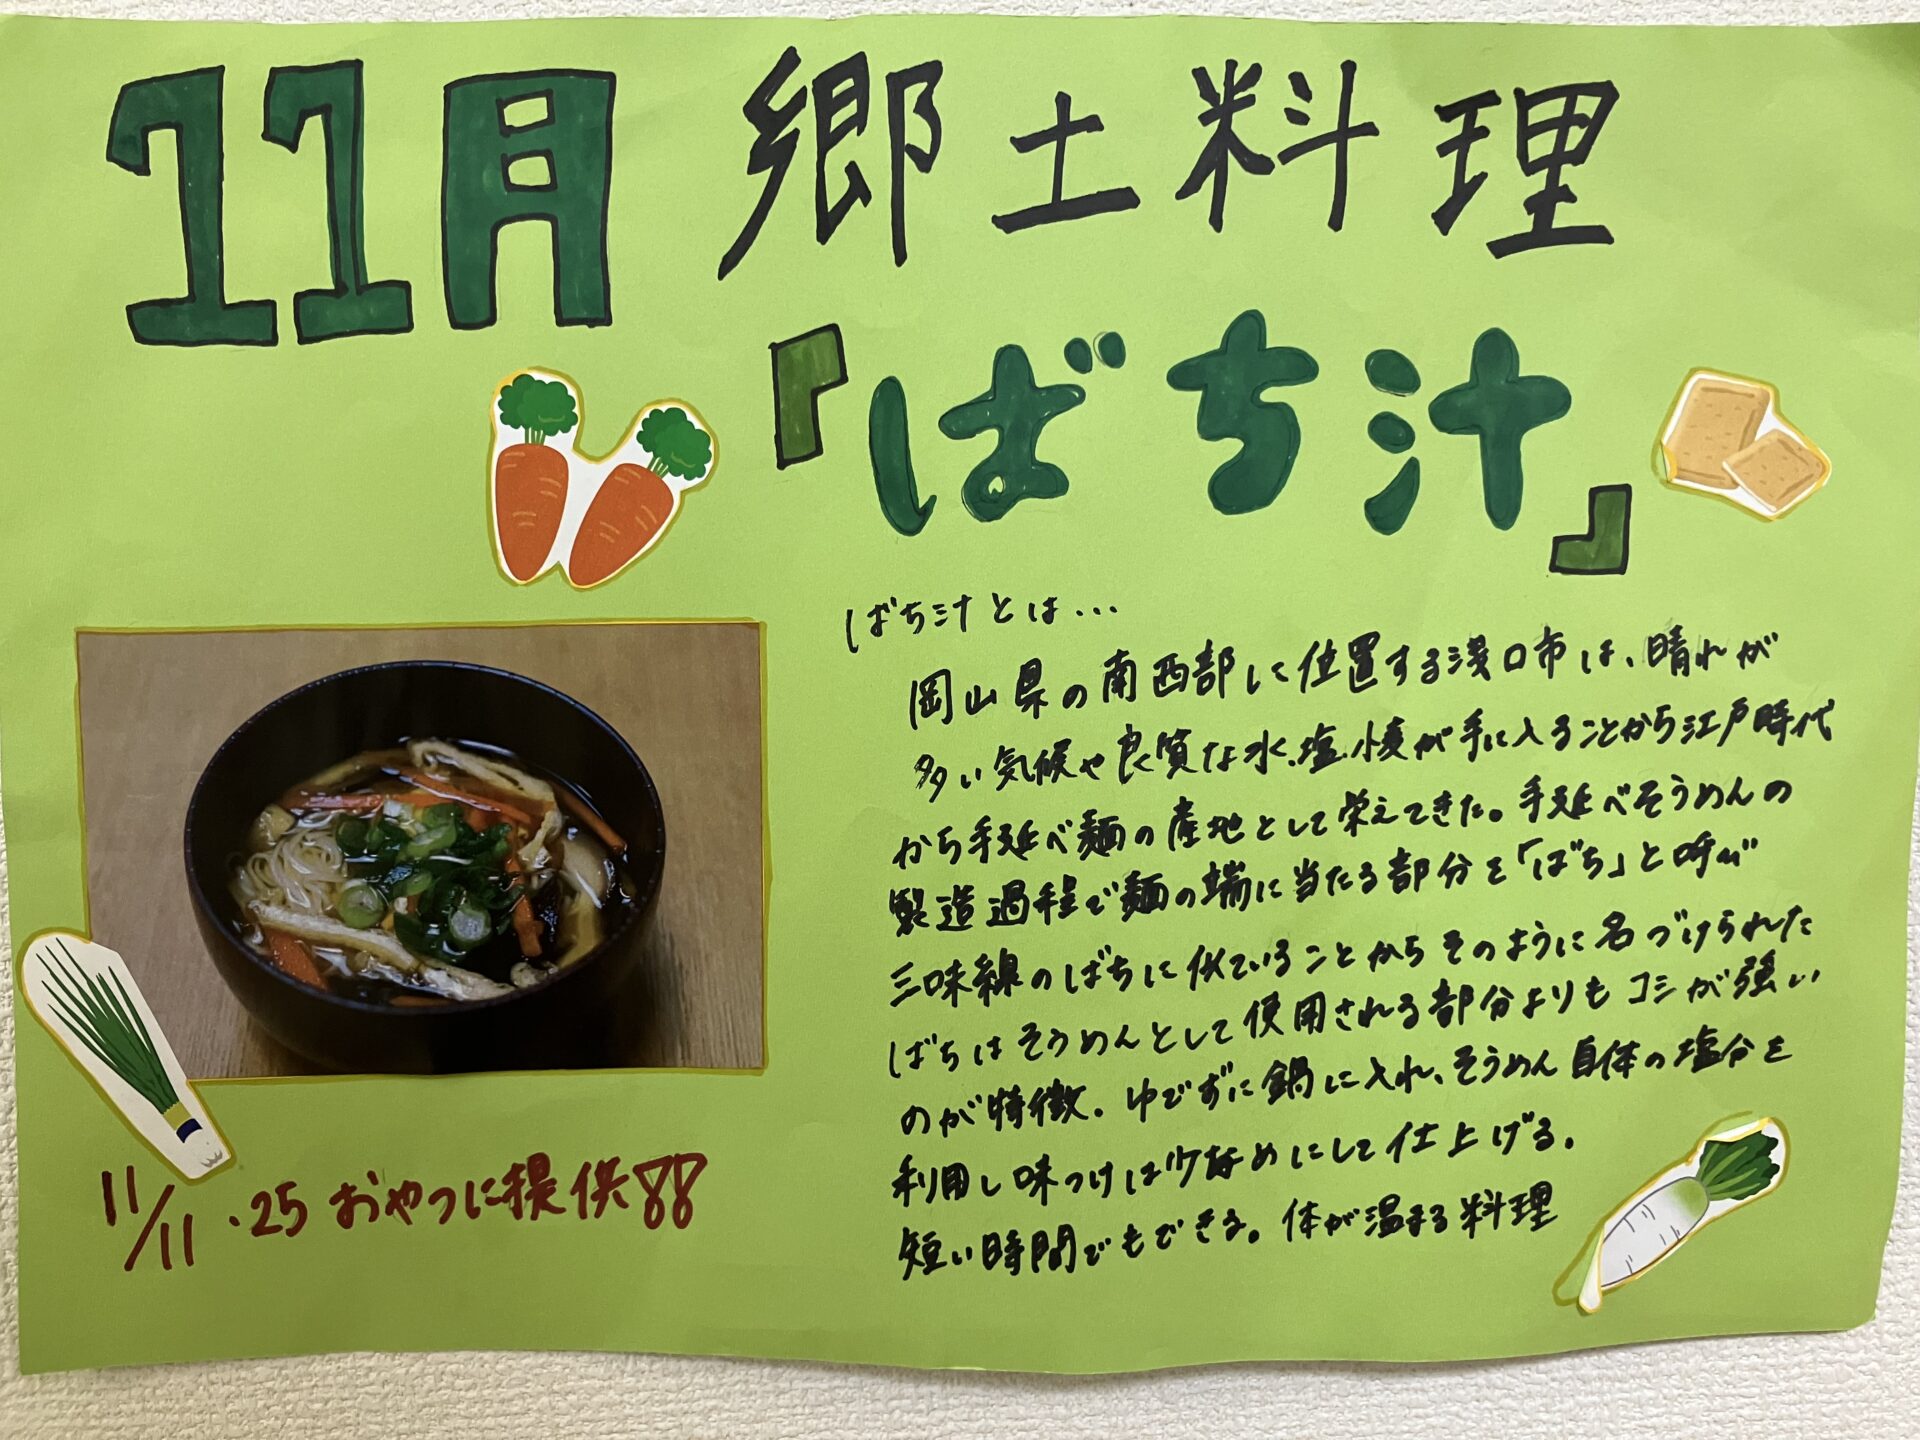 11月 郷土料理
『ばち汁』
ばち汁とは...
岡山県の南西部に位置する浅口市は、晴れが
多い気候や良質な水、塩、小麦が手に入ることから江戸時代
から手延べ麺の産地として栄えてきた。手延べそうめんの
製造過程で麺の端に当たる部分を「ばち」と呼び
三味線のばちに似ていることからそのように名づけられた
ばちはそうめんとして使用される部分よりもコシが強い
のが特徴。ゆでずに鍋に入れ、そうめん自体の塩分を
利用し味つけは少なめにして仕上げる。
短い時間でもできる。体が温まる料理
11/11.25 おやつに提供